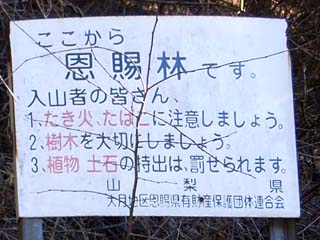 ここから
恩賜林です。
入山者の皆さん、
1、たき火、たばこに注意しましょう。
2、樹木を大切にしましょう。
3、植物 土石の持出は、罰せられます。
山梨県
大月地区恩賜県有財産保護団体連合会